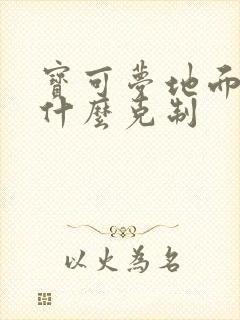 寶可夢地而
什麼克制
以火為名